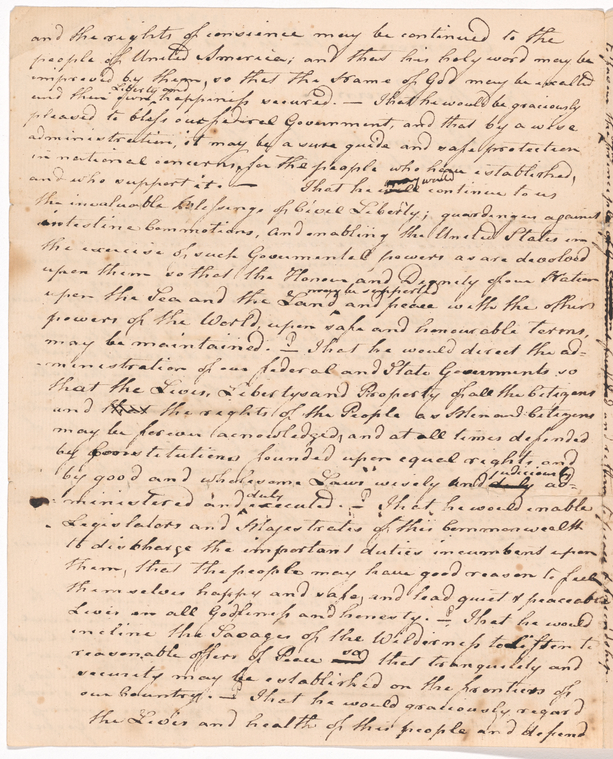 and the rights of consience may be continued to the
people of United America; and that his holy word may be
improved by them, so that the Name of God may be exalted
Liberty and
and their own happiness secured. — That he would be graciously
pleased to bless our federal Government, and that by a wise
administration, it may be a sure guide and safe protection
in national concerns, for the people who have established,
and who support it. — That he would continue to us
the invaluable blessings of Civil Liberty; guarding us against
intestine Commotions, and enabling the United States in
the exercise of such Governmental powers as are devolved
upon them so that the Honour and Dignity of our Nation
may be supported
upon the Sea and the Land, and peace with the other
powers of the World, upon safe and honourable terms,
may be maintained. — That he would direct the ad-
ministration of our federal and State Governments so
that the Lives, Libertys and Property of all the Citizens
and that the rights of the People as Men and Citizens
may be forever acnowledged, and at all times defended
by Constitutions, founded upon equal rights, and
judiciously
by good and wholesome Laws wisely and duly ad-
duly
ministered and executed. — That he would enable
Legislators and Majestrates of this Commonwealth
to discharge the important duties incumbent upon
them, that the people may have good reason to feel
themselves happy and safe, and lead quiet & peaceable
Lives in all Godliness and honesty. — That he would
incline the Savages of the Wilderness to listen to
reasonable offers of Peace so that tranquility and
security may be established on the frontiers of
our Country. — That he would graciously regard
the Lives and health of this people and defend